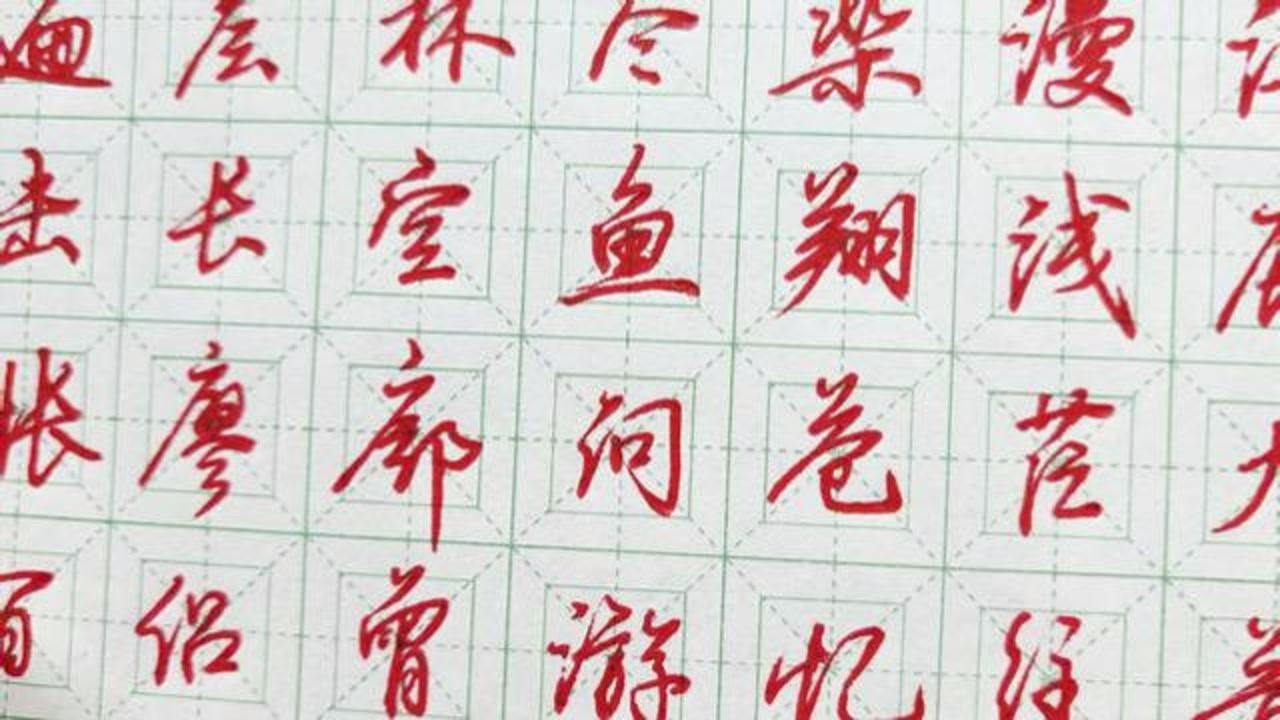 遍层林尽染漫
击长空鱼翔浅
怅廖廓问苍茫
百侣曾游忆往